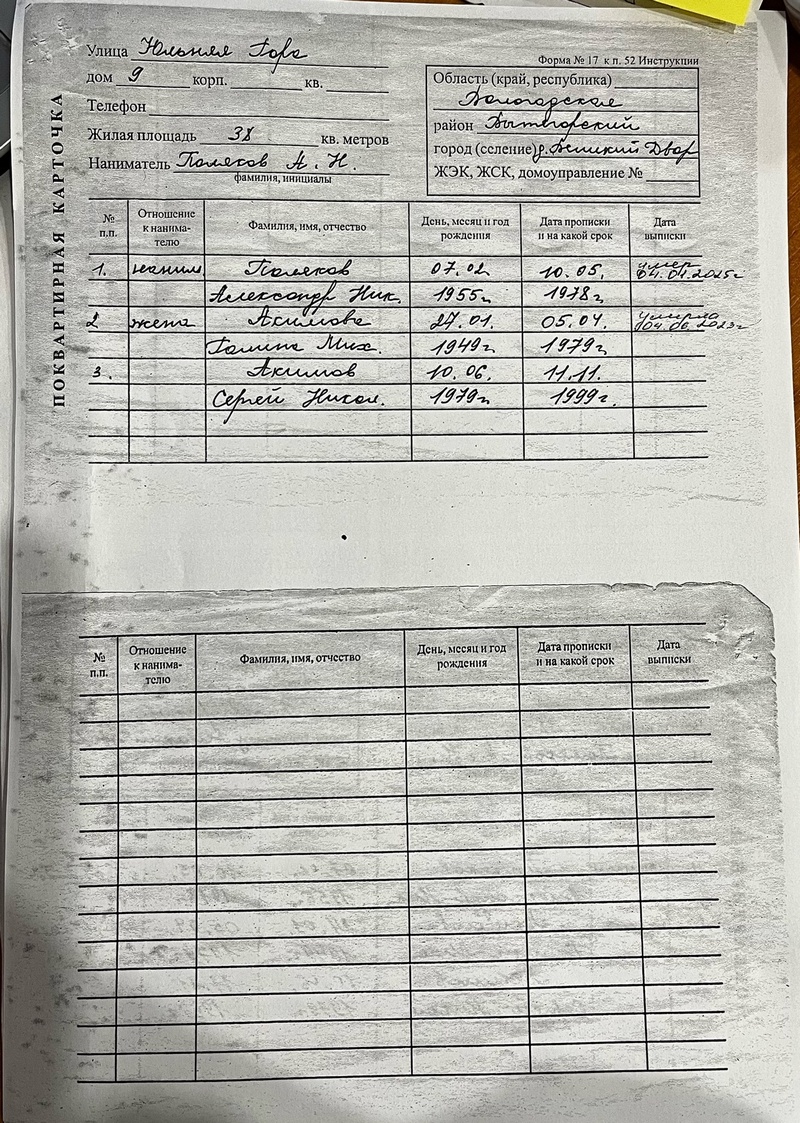 ПОКВАРТИРНАЯ КАРТОЧКА
Улица Юльняя Гора
дом 9 корп. кв.
Телефон
Жилая площадь 38 кв. метров
Наниматель Поляков А. Н.
фамилия, инициалы
Форма № 17 к п. 52 Инструкции
Область (край, республика)
Вологодская
район Вытегорский
город (селение) д. Великий Двор
ЖЭК, ЖСК, домоуправление №
№ п.п. Отношение к нанима-телю Фамилия, имя, отчество День, месяц и год рождения Дата прописки и на какой срок Дата выписки
1. наним. Поляков 07.02 10.05. умер 04.01.2025г
Александр Ник. 1955г 1978г
2 жена Акимова 27.01. 05.04. умерла 04.06.2023г
Галина Мих. 1949г 1979г
3. Акимов 10.06. 11.11.
Сергей Никол. 1979г 1999г.
№ п.п. Отношение к нанима-телю Фамилия, имя, отчество День, месяц и год рождения Дата прописки и на какой срок Дата выписки